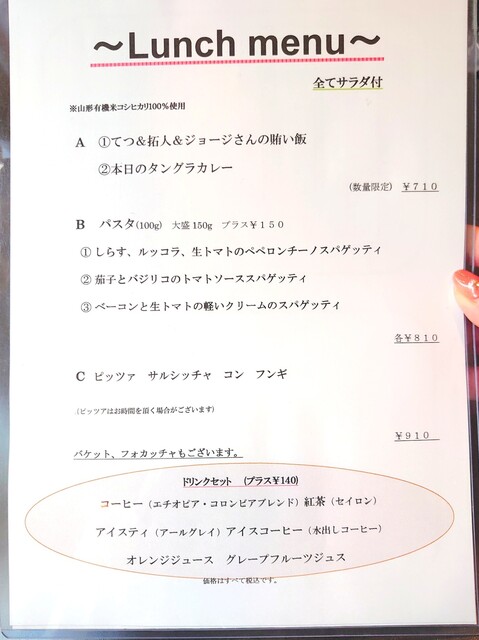 ～Lunch menu～
全てサラダ付
※山形有機米コシヒカリ100％使用
A ①てつ＆拓人＆ジョージさんの賄い飯
②本日のタングラカレー
(数量限定) ￥７１０
B パスタ(100g) 大盛 150g プラス￥１５０
① しらす、ルッコラ、生トマトのペペロンチーノスパゲッティ
② 茄子とバジリコのトマトソーススパゲッティ
③ ベーコンと生トマトの軽いクリームのスパゲッティ
各￥８１０
C ピッツァ サルシッチャ コン フンギ
(ピッツアはお時間を頂く場合がございます)
￥９１０
バケット、フォカッチャもございます。
ドリンクセット (プラス￥140)
コーヒー（エチオピア・コロンビアブレンド）紅茶（セイロン）
アイスティ（アールグレイ）アイスコーヒー（水出しコーヒー）
オレンジジュース グレープフルーツジュス
価格はすべて税込です。